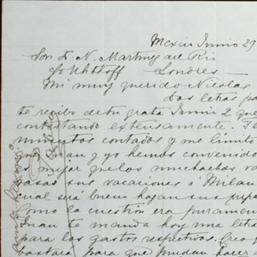 Mexico Junio 29
Sor. D. N. Martinez del Rio
Londres
Mi muy querido Nicolas
Dos letras pa
te recibo de tu grata Junio 2 que
contestando extensamente. Te
minutos contados y me limito
Juan y yo hemos convenido
es mejor que los muchachos va
sus vacaciones a Milan
cual será bueno hagan sus prepa
Como la cuestión era puramen
Juan te manda hoy una letra
para los gastos respectivos. Creo q
bastará para que puedan hacer